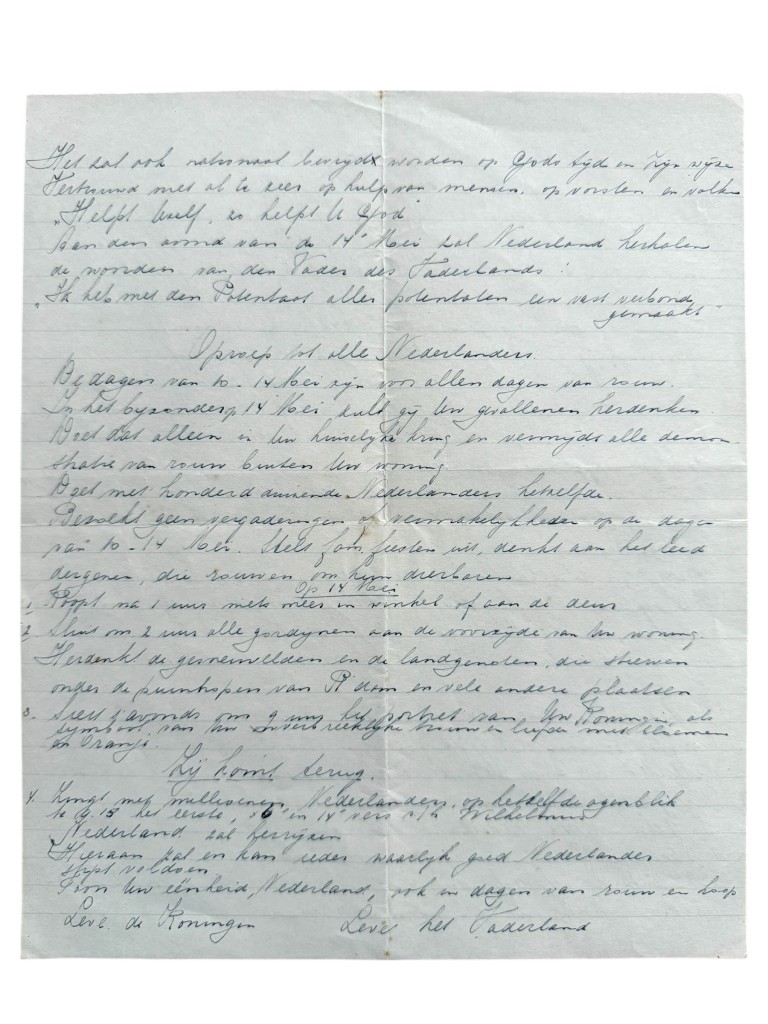 Het zal ook nationaal bevrijd worden op Gods tijd en zijn wijze
Vertrouwd niet al te zeer op hulp van mensen, op vorsten en volken
"Helpt Uself, zo helpt U God"
Aan den avond van de 14e Mei zal Nederland herhalen
de woorden van den Vader des Vaderlands:
"Ik heb met den Potentaat aller potentaten een vast verbond
gemaakt"
Oproep tot alle Nederlanders.
De dagen van 10 - 14 Mei zijn voor allen dagen van rouw.
In het byzonder op 14 Mei zult gij Uw gevallenen herdenken.
Doet dat alleen in Uw huiselijke kring en vermijdt alle demon-
stratie van rouw buiten Uw woning.
Doet met honderd duizende Nederlanders hetzelfde.
Bezoekt geen vergaderingen of vermakelijkheden op de dagen
van 10 - 14 Mei. Stelt feesten uit, denkt aan het leed
dergenen, die rouwen om hun dierbaren
Op 14 Mei
1. Koopt na 1 uur niets meer in winkel of aan de deur
2. Sluit om 2 uur alle gordynen aan de voorzyde van Uw woning.
Herdenkt de gesneuvelden en de landgenoten, die stierven
onder de puinhopen van R'dam en vele andere plaatsen
3. Siert s'avonds om 9 uur het portret van Uw Koningin, als
symbool van Uw onverbreekelijke trouw en liefde met bloemen
en Oranje.
Zij komt terug.
4. Zingt met millioenen Nederlanders op hetzelfde ogenblik
te 9.15 het eerste, 6e en 14e vers v/h Wilhelmus
Nederland zal herrijzen
Hieraan zal en kan ieder waarlijk goed Nederlander
stipt voldoen
Toon Uw eenheid, Nederland, ook in dagen van rouw en hoop
Leve de Koningin Leve het Vaderland